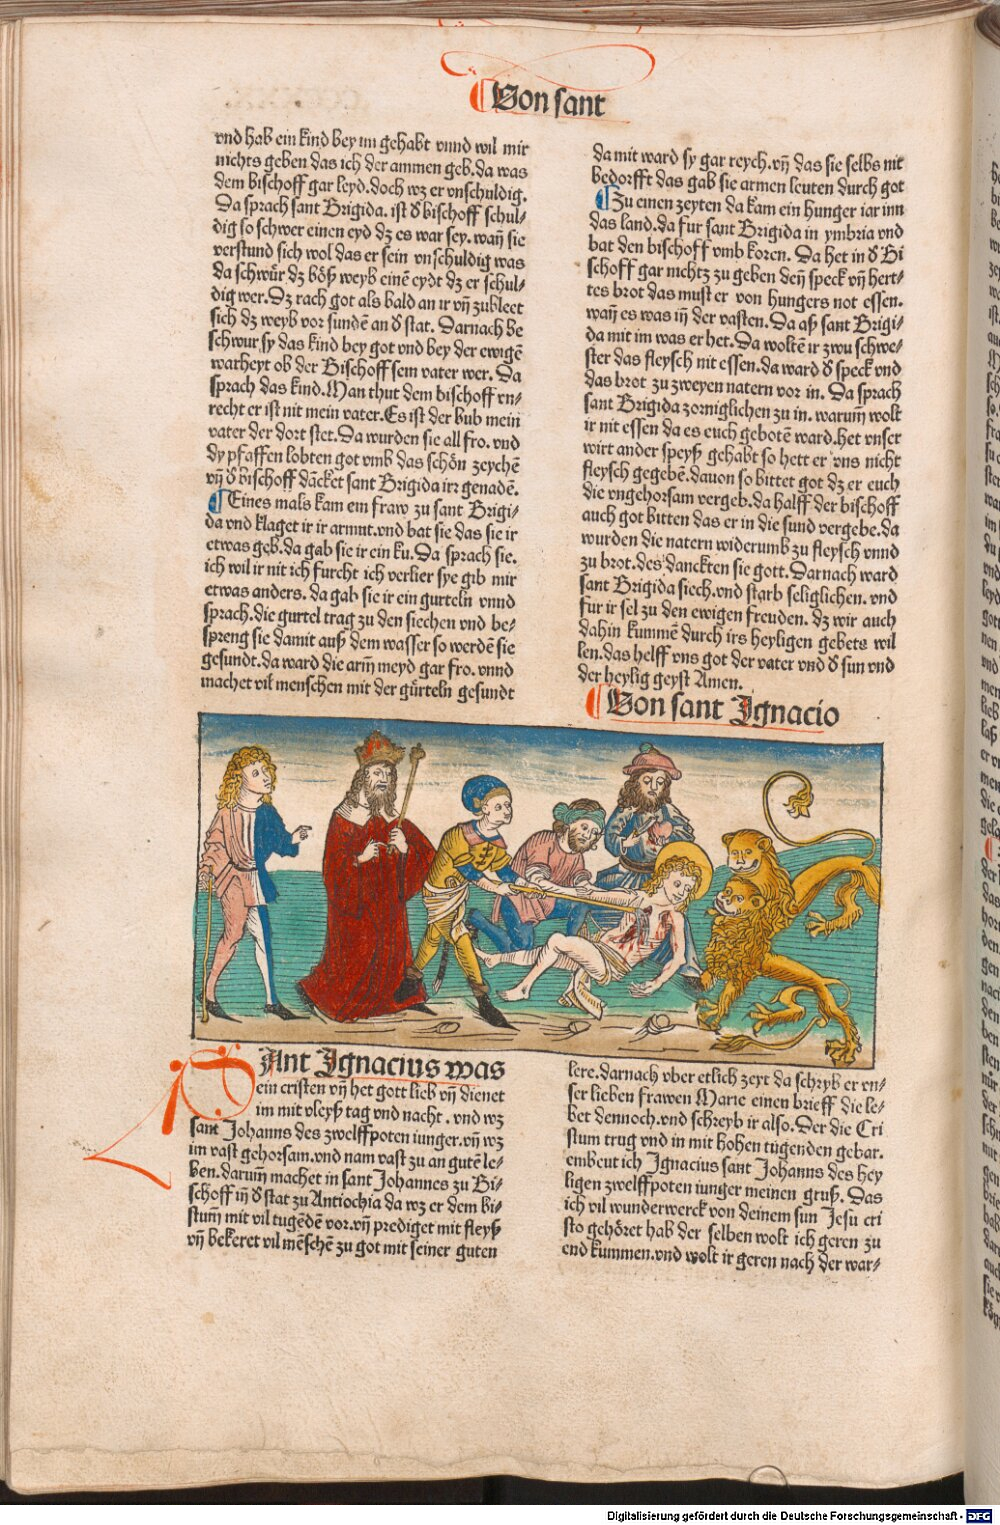 Von sant
vnd hab ein kind bey im gehabt vnnd wil mir
nichts geben das ich der ammen geb. da was
dem bischoff gar leyd. doch wz er vnschuldig.
Da sprach sant Brigida. ist ð bischoff schul⸗
dig so schwer einen eyd dz es war sey. wañ sie
verstund sich wol das er sein vnschuldig was
da schwůr dz bőß weyb einē eydt dz er schul⸗
dig wer. Dz rach got als bald an ir vñ zubleet
sich dz weyb vor sundē an ð stat. Darnach be
schwur sy das kind bey got vnd bey der ewigē
warheyt ob der Bischoff sein vater wer. Da
sprach das kind. Man thut dem bischoff vn⸗
recht er ist nit mein vater. Es ist der bub mein
vater der dort stet. Da wurden sie all fro. vnd
dy pfaffen lobten got vmb das schőn zeychē
vñ ð bischoff dācket sant Brigida irr genadē.
Eines mals kam ein fraw zu sant Brigi⸗
da vnd klaget ir ir armut. vnd bat sie das sie ir
etwas geb. da gab sie ir ein ku. Da sprach sie.
ich wil ir nit ich furcht ich verlier sye gib mir
etwas anders. da gab sie ir ein gurteln vnnd
sprach. die gurtel trag zu den siechen vnd be⸗
spreng sie damit auß dem wasser so werdē sie
gesundt. da ward die arm̃ meyd gar fro. vnnd
machet vil menschen mit der gűrteln gesundt
da mit ward sy gar reych. vñ das sie selbs nit
bedorfft das gab sie armen leuten durch got
Zu einen zeyten da kam ein hunger iar inn
das land. da fur sant Brigida in ymbria vnd
bat den bischoff vmb koren. Da het in ð Bi
schoff gar nichtz zu geben deñ speck vñ hert⸗
tes brot das must er von hungers not essen.
wañ es was iñ der vasten. Da aß sant Brigi⸗
da mit im was er het. Da woltē ir zwu schwe⸗
ster das fleysch nit essen. da ward ð speck vnd
das brot zu zweyen natern vor in. Da sprach
sant Brigida zorniglichen zu in. warum̃ wolt
ir nit essen da es euch gebotē ward. het vnser
wirt ander speyß gehabt so hett er vns nicht
fleysch gegebē. dauon so bittet got dz er euch
die vngehorsam vergeb. da halff der bischoff
auch got bitten das er in die sund vergebe. da
wurden die natern widerumb zu fleysch vnnd
zu brot. des danckten sie gott. Darnach ward
sant Brigida siech. vnd starb seliglichen. vnd
fur ir sel zu den ewigen freuden. dz wir auch
dahin kummē durch irs heyligen gebets wil
len. das helff vns got der vater vnd ð sun vnd
der heylig geyst Amen.
Von sant Ignacio
SAnt Ignacius was
ein cristen vñ het gott lieb vñ dienet
im mit vleyß tag vnd nacht. vnd wz
sant Johanns des zwelffpoten iunger. vñ wz
im vast gehorsam. vnd nam vast zu an gutē le⸗
ben. darum̃ machet in sant Johannes zu Bi⸗
schoff iñ ð stat zu Antiochia da wz er dem bi⸗
stum̃ mit vil tugēdē vor. vñ prediget mit fleyß
vñ bekeret vil mēschē zu got mit seiner guten
lere. darnach vber etlich zeyt da schryb er vn⸗
ser lieben frawen Marie einen brieff die le⸗
bet dennoch. vnd schreyb ir also. Der die Cri
stum trug vnd in mit hohen tugenden gebar.
embeut ich Ignacius sant Johanns des hey
ligen zwelffpoten iunger meinen gruß. Das
ich vil wunderwerck von deinem sun Jesu cri
sto gehőret hab der selben wolt ich geren zu
end kummen. vnd wolt ir geren nach der war⸗
Digitalisierung gefördert durch die Deutsche Forschungsgemeinschaft - DFG